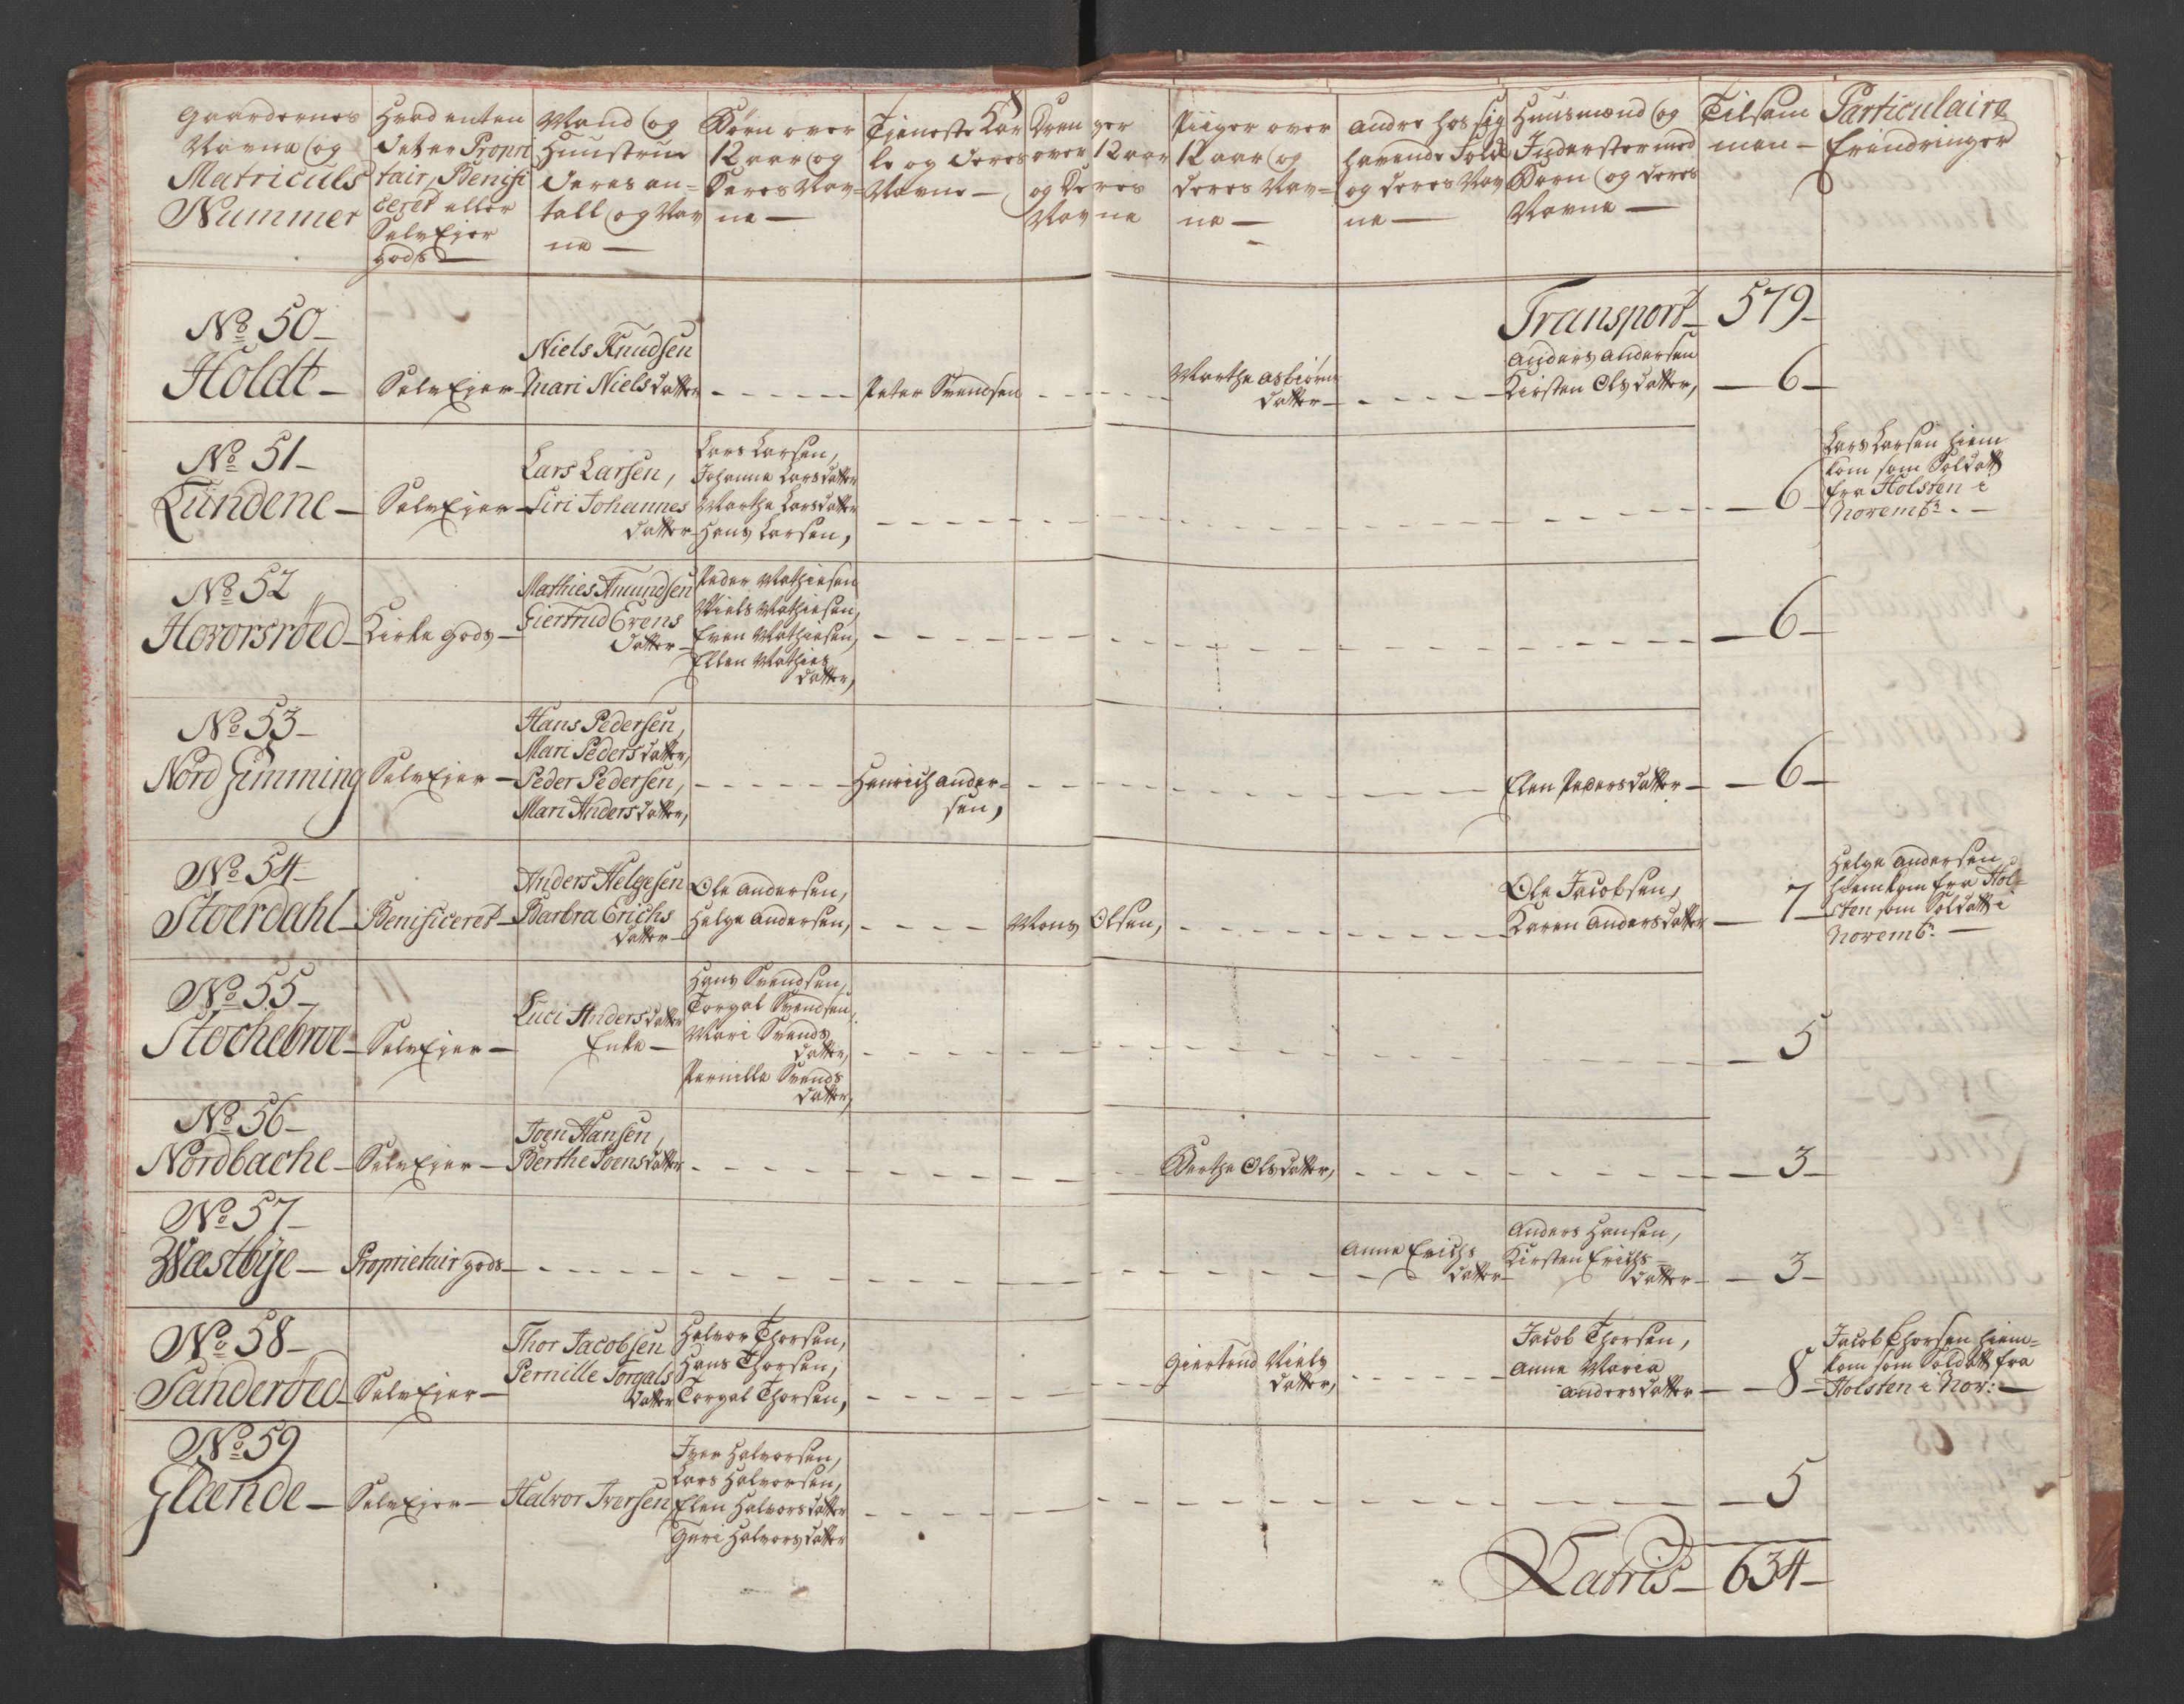 Gaardernes
Navne og
Matriculs
Nummer
Hvad enten
det er Propri
tair, Benifi
ceret eller
SelvEjer
Gods
Mand og
Huustrue
deres an=
tall og Nav
ne —
Børn over
12 aar og
deres Nav=
ne —
Tieneste Kar
le og deres
Navne —
Drenger
over 12 aar
og Deres
Navne
Piiger over
12 aar og
deres Nav=
ne —
andre hos sig
havende Folk
og deres Nav
ne —
Huusmænd og
Inderster med
Børn og deres
Navne —
Tilsam
men —
Particulaire
Erindringer
Transport — 579 —
No 50 —
Holdt —
SelvEjer —
Niels Knudsen
Mari Nielsdatter
Peter Svendsen
Marthe Asbiørns
datter —
Anders Andersen
Kirsten Olsdatter,
— 6 —
No 51 —
Lundene —
SelvEjer —
Lars Larsen,
Siri Johannes
datter —
Lars Larsen,
Johanne Larsdatter
Marthe Larsdatter
Hans Larsen,
— 6 —
Lars Larsen hiem
kom som Soldatt
fra Holsten i
Novembr. —
No 52
Hovorsröed —
Kirke gods —
Mathies Amundsen
Giertrud Evens
datter —
Peder Mathiesen
Niels Mathiesen,
Even Mathiesen,
Ellen Mathies
datter,
— 6 —
No 53 —
Nord Gimming
SelvEjer —
Hans Pedersen,
Mari Pedersdatter,
Peder Pedersen,
Mari Andersdatter,
Henrich Ander=
sen,
Elen Pedersdatter —
— 6 —
No 54 —
Stoerdahl —
Benificeret —
Anders Helgesen
Barbra Erichs
datter —
Ole Andersen,
Helge Andersen,
Mons Olsen,
Ole Jacobsen,
Karen Andersdatter
— 7 —
Helge Andersen
hiemkom fra Hol=
sten som Soldatt i
Novembr. —
No 55 —
Stochebroe —
SelvEjer —
Luci Andersdatter
Enke —
Hans Svendsen,
Torgal Svendsen,
Mari Svends
datter,
Pernille Svends
datter,
— 5
No 56 —
Nordbache —
SelvEjer —
Joen Hansen,
Berthe Joensdatter
Berthe Olsdatter,
— 3 —
No 57 —
Wæstbÿe —
Proprietair gods —
Anne Erichs
datter —
Anders Hansen,
Kirsten Erichs
datter —
— 3 —
No 58 —
Sanderöed —
SelvEjer —
Thor Jacobsen
Pernille Torgals
datter
Halvor Thorsen,
Hans Thorsen,
Torgal Thorsen,
Giertrud Niels
datter,
Jacob Thorsen,
Anne Maria
Andersdatter —
— 8 —
Jacob Thorsen hiem=
kom som Soldatt fra
Holsten i Nov: —
No 59
Glænde —
SelvEjer —
Halvor Iversen
Iver Halvorsen,
Lars Halvorsen,
Elen Halvorsdatter
Guri Halvorsdatter
— 5
Latris — 634 —